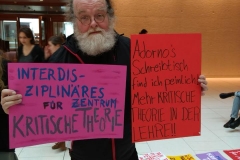 INTERDIS-
ZIPLINÄRES
FÜR ZENTRUM
KRITISCHE THEORIE
Adorno's
Schreibtisch
find ich peinlich!
Mehr KRITISCHE
THEORIE IN DER
LEHRE!!